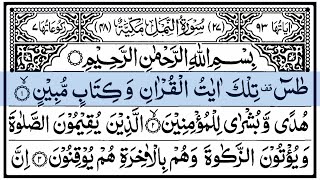 اٰیَاتُهَا ٩٣ (٢٧) سُوْرَةُ النَّمْلِ مَكِّیَّةٌ (٤٨) رُكُوْعَاتُهَا ٧
بِسْمِ اللّٰهِ الرَّحْمٰنِ الرَّحِیْمِ
طٰسٓ قف تِلْكَ اٰیٰتُ الْقُرْاٰنِ وَ كِتَابٍ مُّبِیْنٍ ١
هُدًی وَّ بُشْرٰی لِلْمُؤْمِنِیْنَ ٢ الَّذِیْنَ یُقِیْمُوْنَ الصَّلٰوةَ
وَ یُؤْتُوْنَ الزَّكٰوةَ وَ هُمْ بِالْاٰخِرَةِ هُمْ یُوْقِنُوْنَ ٣ اِنَّ